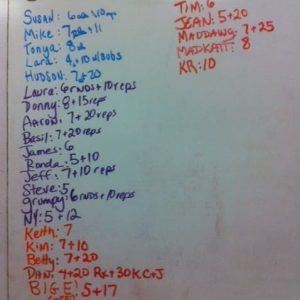 SUSAN: 6
Mike: 7
Tonya: 8
Lara: 4+10 w/subs
HUDSON: 7+20
Laura: 6 RNDS+10 reps
Donny: 8+15 reps
AARON: 7+20 reps
Basil: 7+20 reps
James: 6
Ronda: 5+10
Jeff: 7+10 reps
Steve: 5
grumpy: 6 rnds+10 reps
NY: 5+12
Keith: 7
Kim: 7+10
Betty: 7+20
DAN: 4+20 Rx+30 KC+J
BIG E! 5+17
TIM: 6
JEAN: 5+20
MADDAWG: 7+25
MADKATT: 8
KR: 10